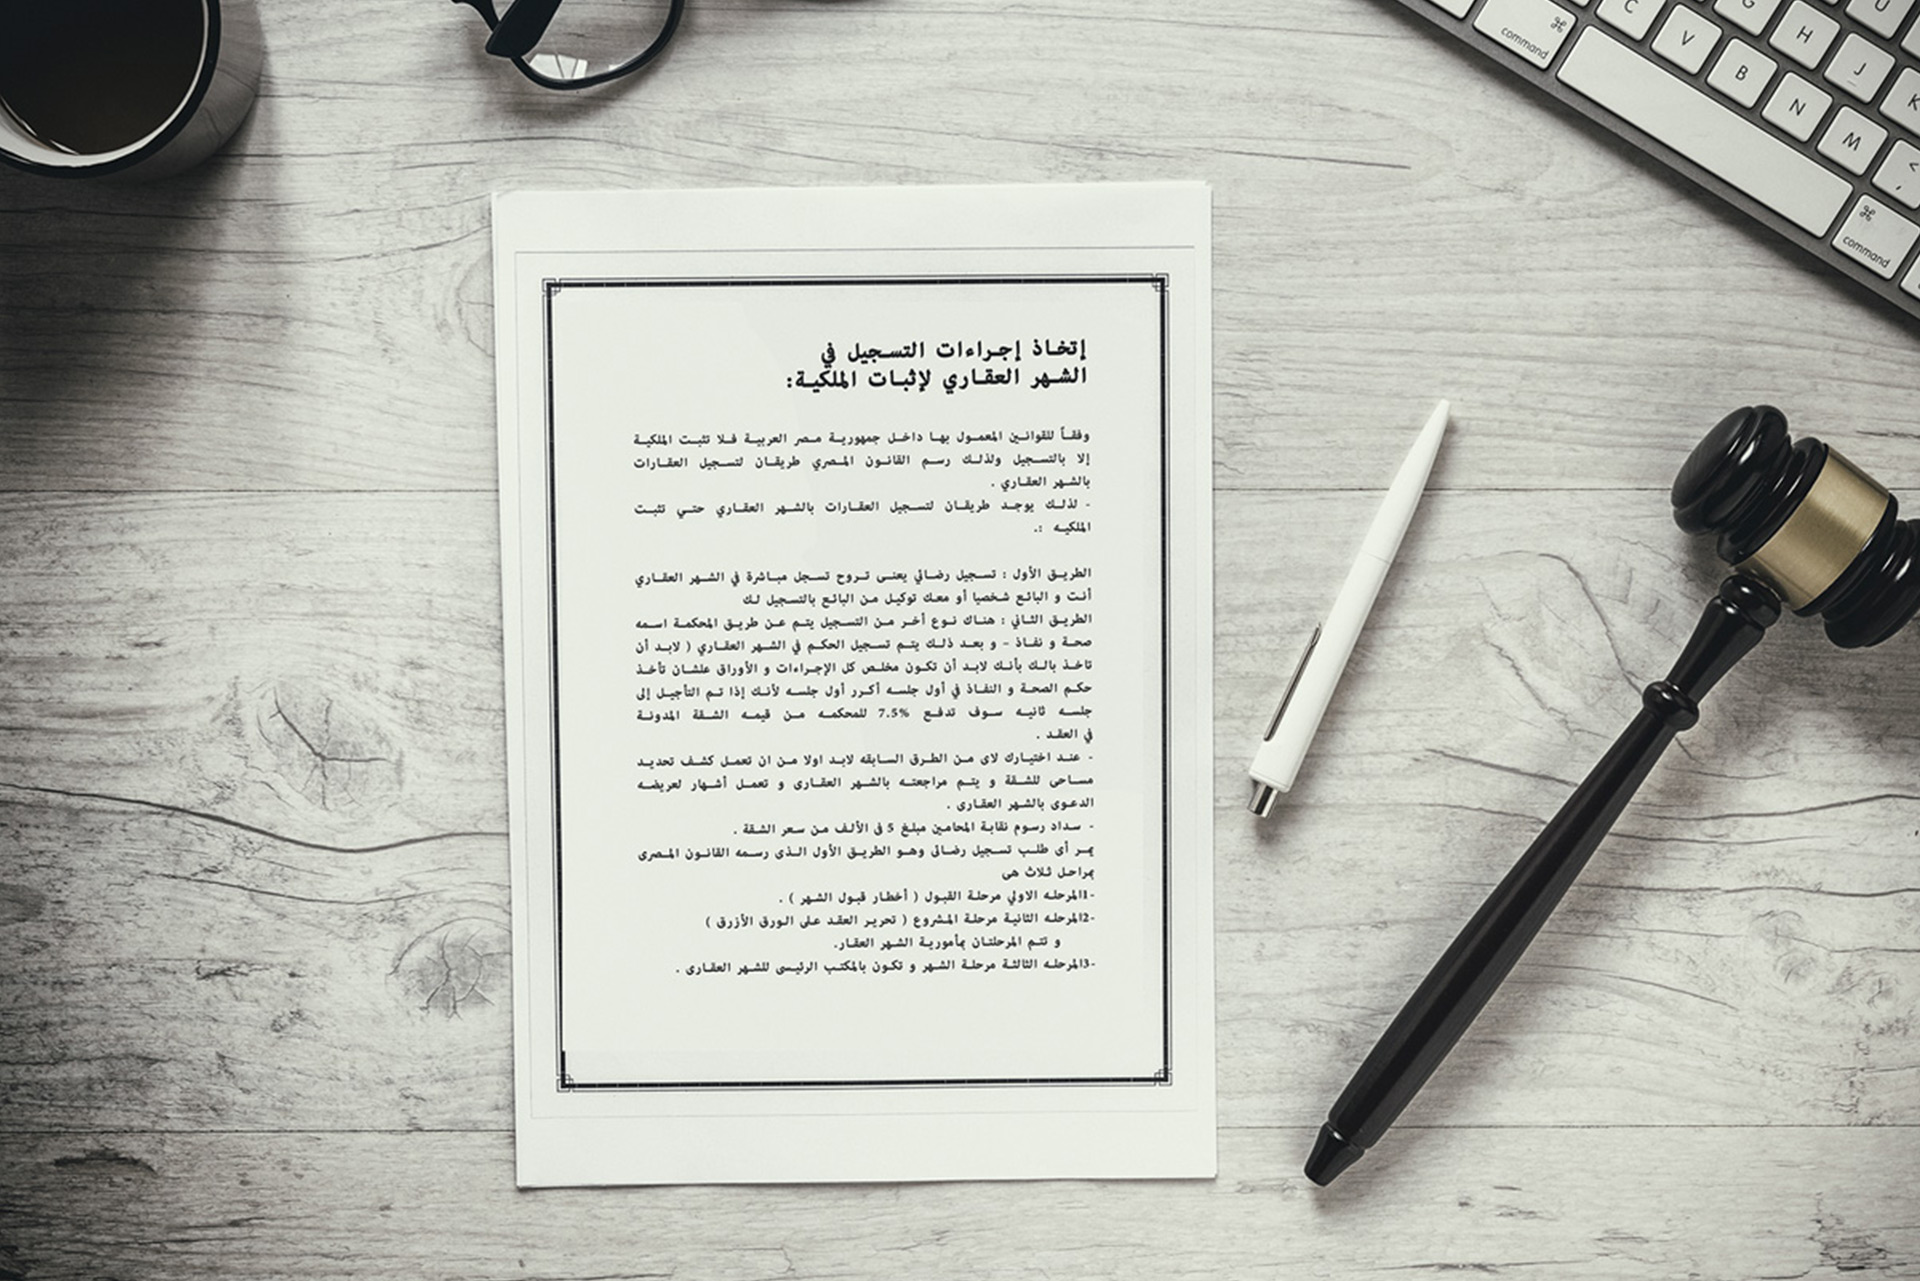 إتخاذ إجراءات التسجيل في
الشهر العقاري لإثبات الملكية:
وفقاً للقوانين المعمول بها داخل جمهورية مصر العربية فلا تثبت الملكية
إلا بالتسجيل ولذلك رسم القانون المصري طريقان لتسجيل العقارات
بالشهر العقاري .
- لذلك يوجد طريقان لتسجيل العقارات بالشهر العقاري حتي تثبت
الملكيه :.
الطريق الأول : تسجيل رضائي يعنى تروح تسجل مباشرة في الشهر العقاري
أنت و البائع شخصيا أو معك توكيل من البائع بالتسجيل لك
الطريق الثاني : هناك نوع أخر من التسجيل يتم عن طريق المحكمة اسمه
صحة و نفاذ – و بعد ذلك يتم تسجيل الحكم في الشهر العقاري ( لابد أن
تاخذ بالك بأنك لابد أن تكون مخلص كل الإجراءات و الأوراق علشان تأخذ
حكم الصحة و النفاذ في أول جلسه أكرر أول جلسه لأنك إذا تم التأجيل إلى
جلسه ثانيه سوف تدفع 7.5% للمحكمه من قيمه الشقة المدونة
في العقد .
- عند اختيارك لاى من الطرق السابقه لابد اولا من ان تعمل كشف تحديد
مساحى للشقة و يتم مراجعته بالشهر العقارى و تعمل أشهار لعريضه
الدعوى بالشهر العقارى .
- سداد رسوم نقابة المحامين مبلغ 5 فى الألف من سعر الشقة .
يمر أى طلب تسجيل رضائى وهو الطريق الأول الذى رسمه القانون المصرى
بمراحل ثلاث هى
-1المرحله الاولي مرحلة القبول ( أخطار قبول الشهر ) .
-2المرحله الثانية مرحلة المشروع ( تحرير العقد على الورق الأزرق )
و تتم المرحلتان بمأمورية الشهر العقار.
-3المرحله الثالثة مرحلة الشهر و تكون بالمكتب الرئيسى للشهر العقارى .
command
C
V
B
G
H
N
J
M
K
U
<
,
command